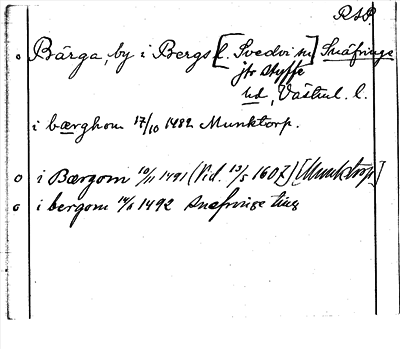 RSP
Bärga, by i Bergs [l. Svedvi sn] Snäfringe
jfr Styffe
hd, Västml. l.
i bærghom 17/10 1482 Munktorp.
i Bærgom 10/11 1491 (Vid. 13/5 1607) [Munktorp]
i bergom 14/8 1492 Snefringe ting